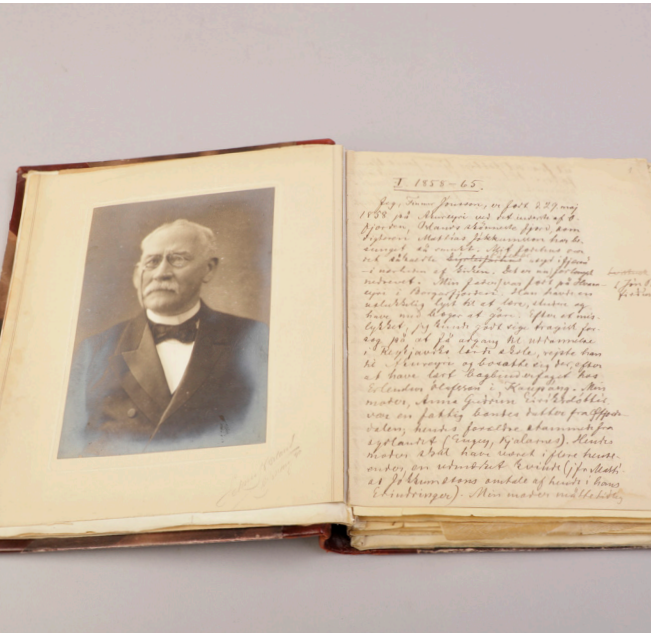 I 1858–65.
Jeg, Finnur Jónsson, er født d. 29. maj
1858 på Akureyri ved det inderste af Ø-
fjorden, Islands skönneste fjord, som
digteren Mattias Jokkumsson har be-
sunget så smukt. Mit fødehus var
det såkaldte
i nærheden af kirken; det er nu for længst
nedrevet. Min fader var født på
i Borgarfjorden. Han havde en
lyst til at lære, skrive og
have med bøger at göre. Efter et mis-
lykket, jeg kunde godt sige tragisk for-
søg på at få adgang til uddannelse
i Reykjaviks lærde skole, rejste han
til Akureyri og bosatte sig der, efter
at have lært bogbinderfaget hos
Erlendur Olafsson i Kaupang. Min
moder, Anna Gudrun Eiriksdóttir
var en fattig bondes datter fra
dalen; hendes forældre stammede fra
sydlandet (Engey, Kjalarnes). Hendes
moder skal have været i flere hense-
ender en udmærket kvinde (jfr. Matti-
as Jokkumssons omtale af hende i hans
Erindringer). Min moder